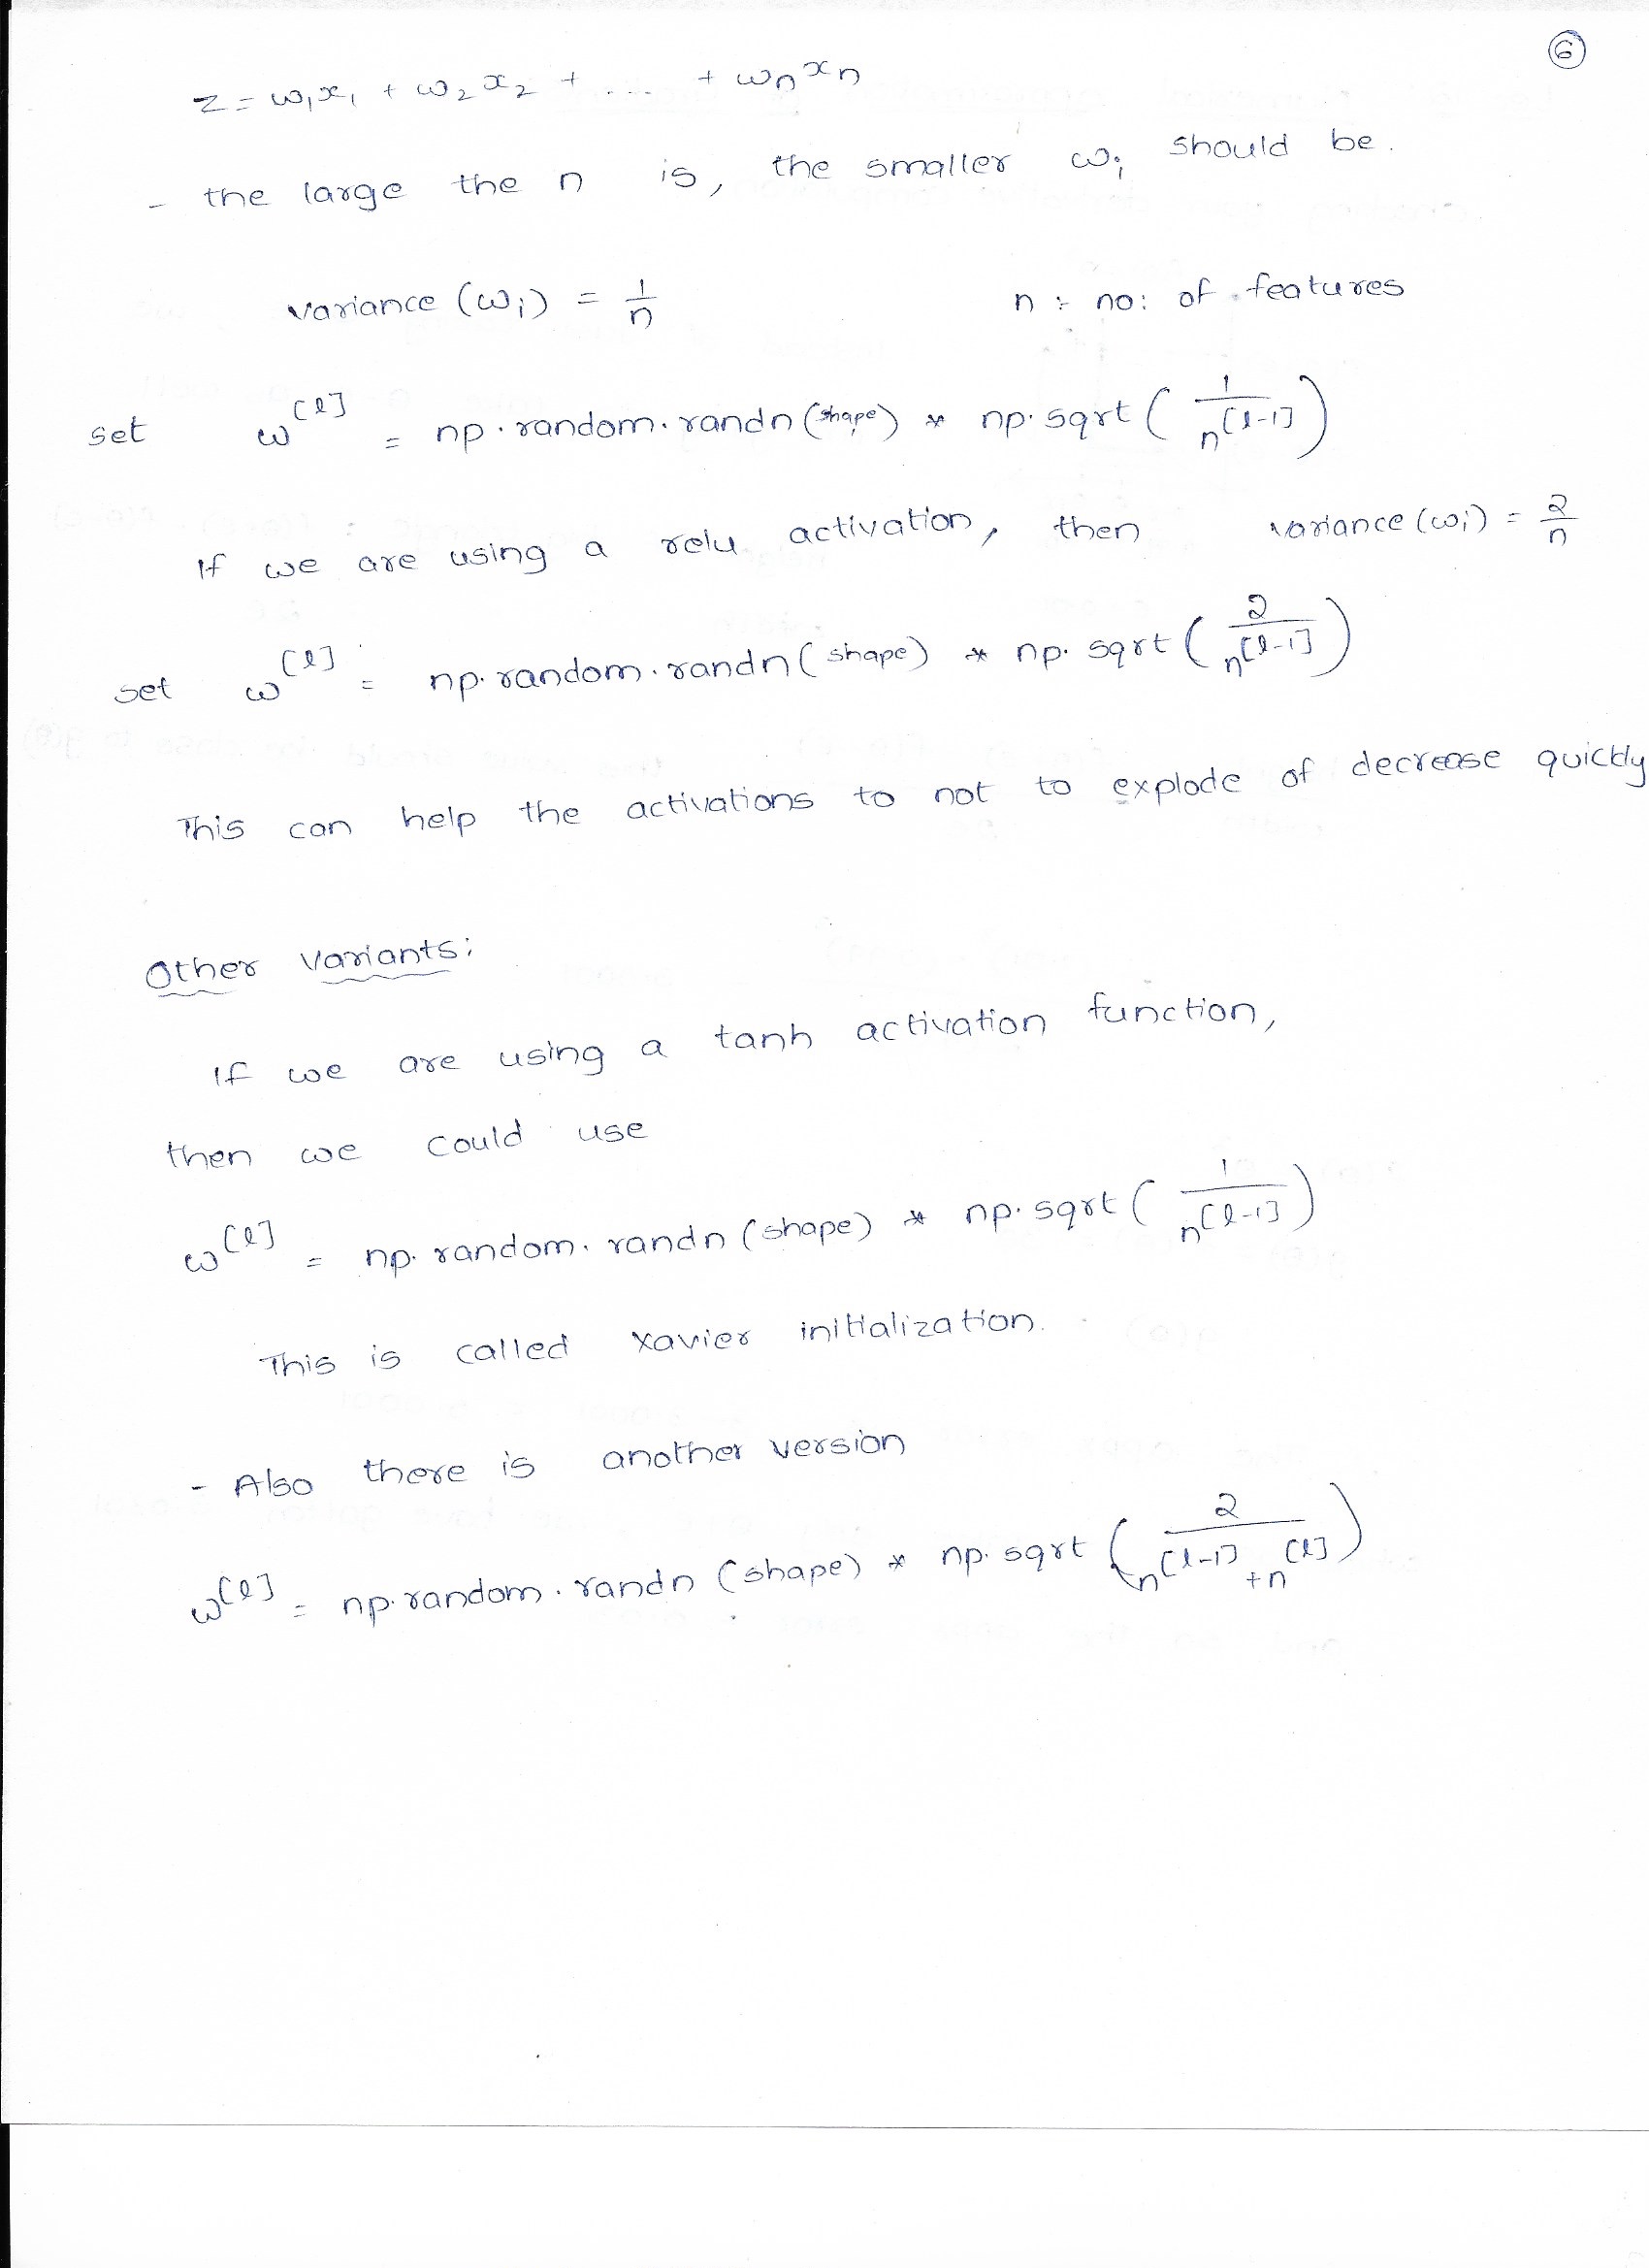 6
z = w₁x₁ + w₂x₂ + .... + wₙxₙ
- the large the n is, the smaller wᵢ should be.
variance (wᵢ) = 1/n n : no: of features
set w^[l] = np.random.randn(shape) * np.sqrt(1/n^[l-1])
If we are using a relu activation, then variance (wᵢ) = 2/n
set w^[l] = np.random.randn(shape) * np.sqrt(2/n^[l-1])
This can help the activations to not to explode of decrease quickly
Other Variants:
If we are using a tanh activation function,
then we could use
w^[l] = np.random.randn(shape) * np.sqrt(1/n^[l-1])
This is called Xavier initialization.
- Also there is another version
w^[l] = np.random.randn(shape) * np.sqrt(2/n^[l-1] + n^[l])